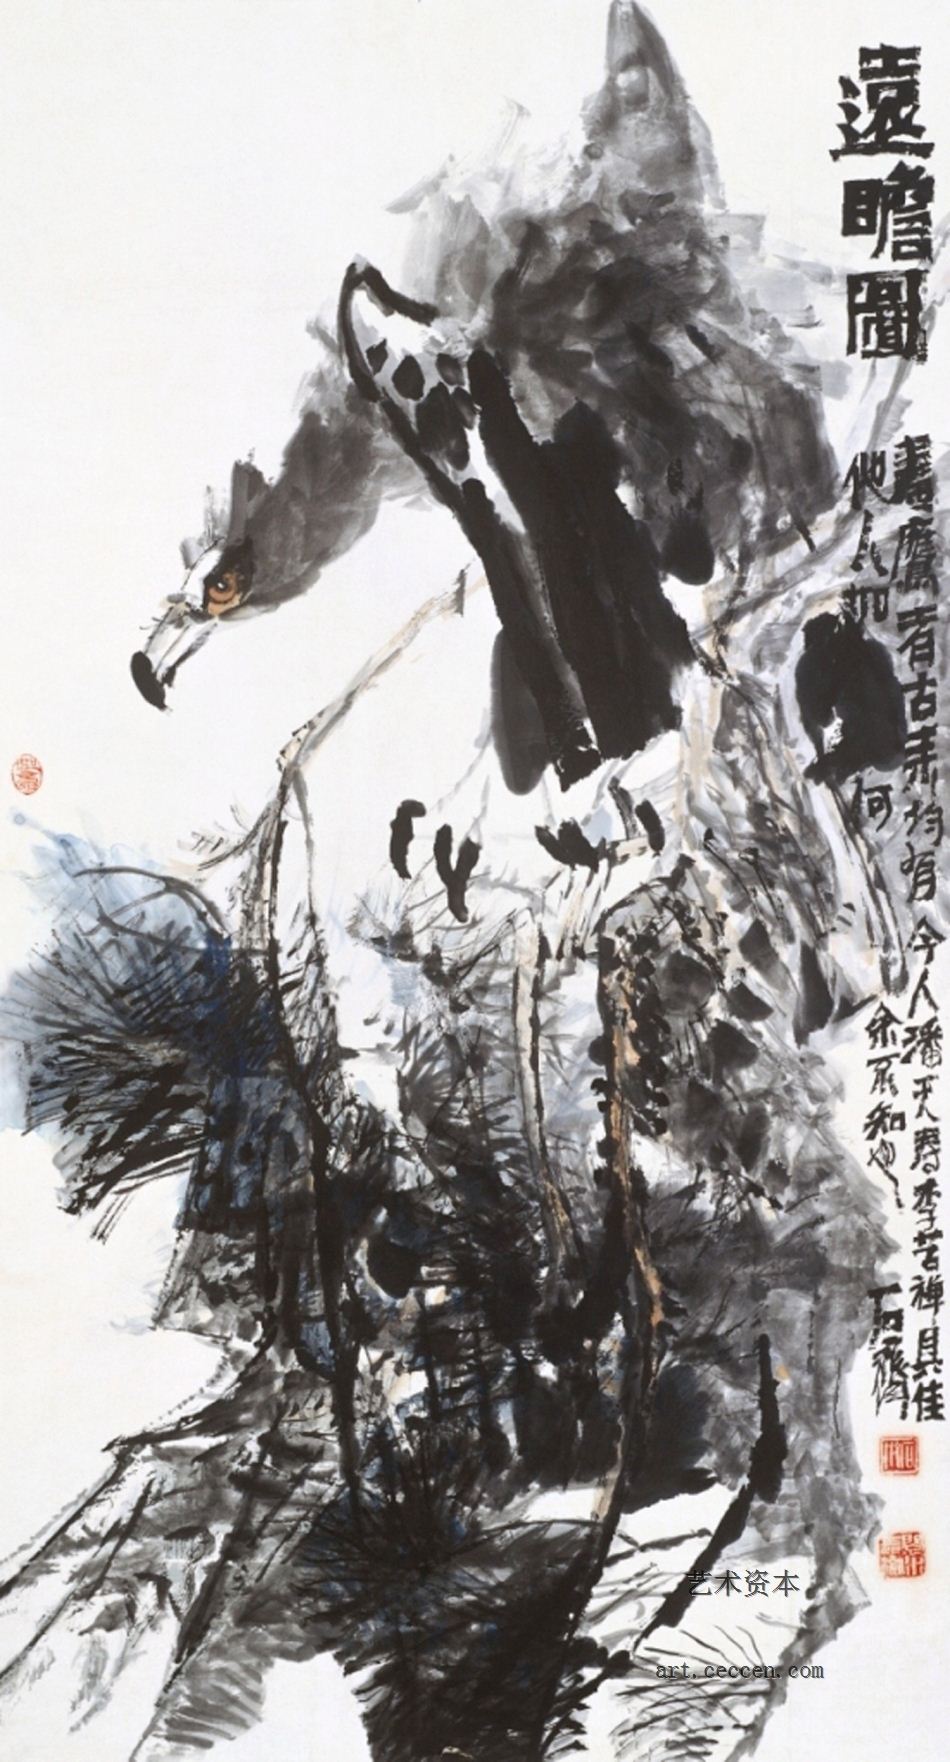 遠瞻圖
畫鷹者古來均有今人潘天壽李苦禪具佳
他人如何
余不知也
石齊
艺术资本
art.ceccen.com